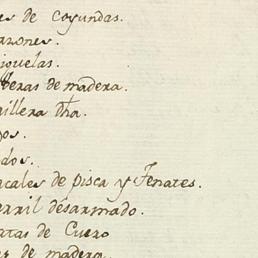 es de coyundas.
azones.
iquelas.
bezas de madera.
aillera dha.
os.
dos.
acales de pisca y Tenates.
erril desarmado.
atas de Cuero
er de madera.